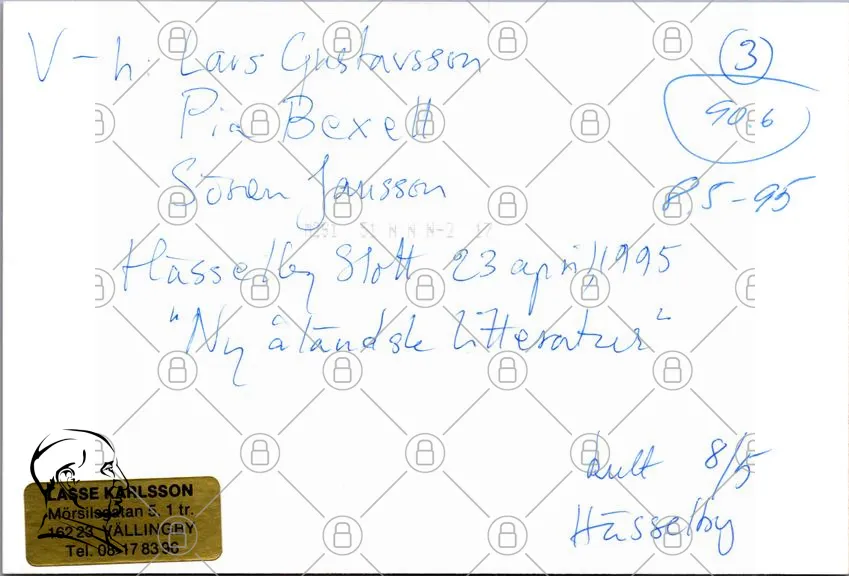 V-h: Lars Gustavsson
Pia Bexell
Sören Jansson
3
90.6
8.5-95
Hässelby Slott 23 april 1995
"Ny åländsk litteratur"
kult 8/5
Hässelby
LASSE KARLSSON
Mörsilsgatan 5, 1 tr.
162 23 VÄLLINGBY
Tel. 08-17 83 96